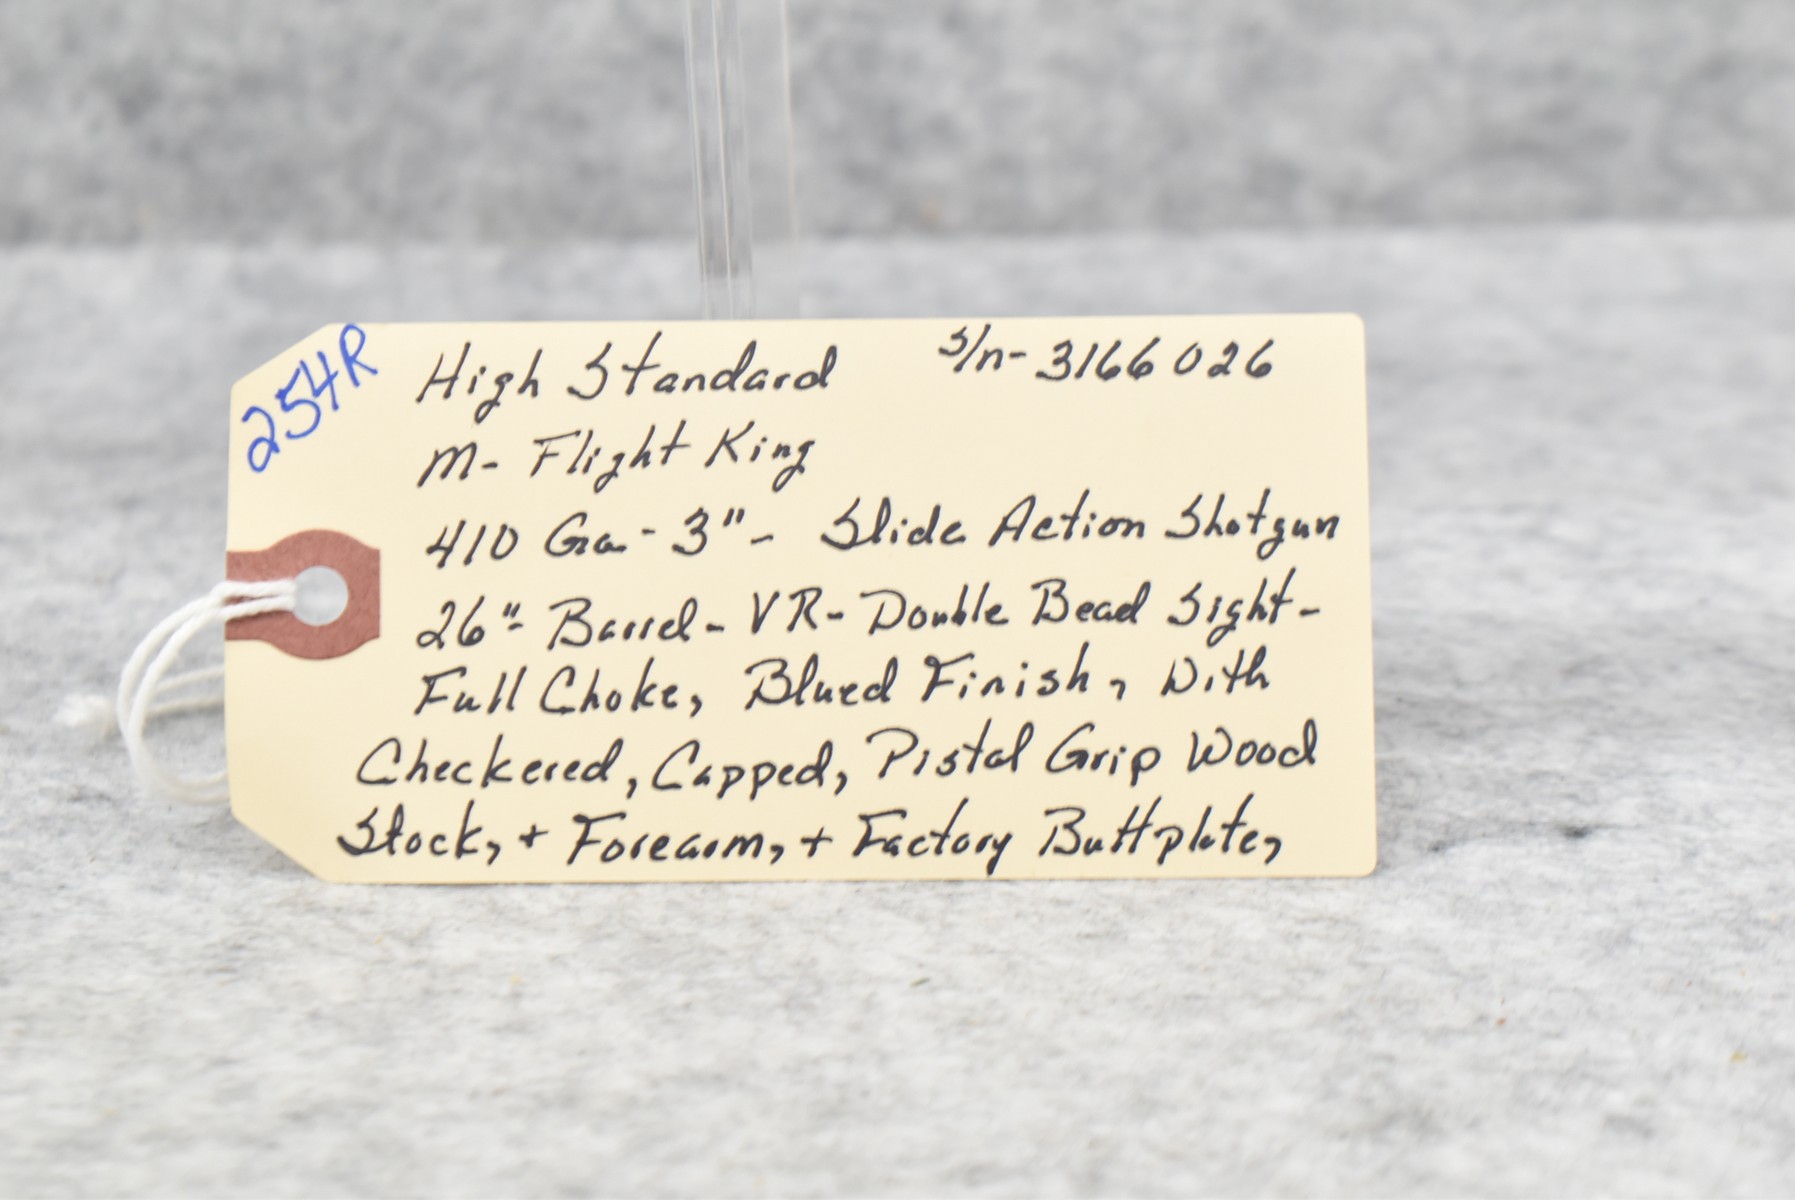 254R
High Standard s/n- 3166026
M- Flight King
410 Ga - 3" - Slide Action Shotgun
26" - Barrel - VR - Double Bead Sight -
Full Choke, Blued Finish, With
Checkered, Capped, Pistol Grip Wood
Stock, + Forearm, + Factory Buttplate,